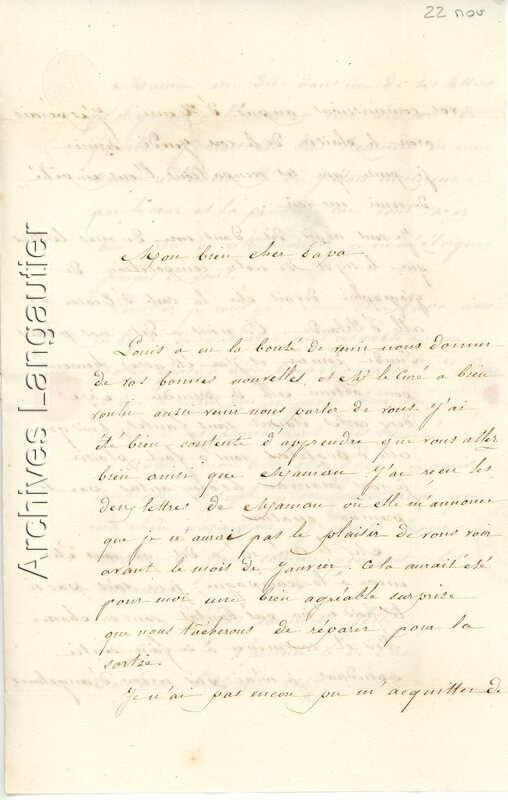 22 nov
Mon bien cher Papa
Louis a eu la bonté de venir nous donner
de vos bonnes nouvelles, et Mr le Curé a bien
voulu aussi venir nous parler de vous. J'ai
été bien content d'apprendre que vous allez
bien ainsi que Maman. J'ai reçu les
deux lettres de Maman où elle m'annonce
que je n'aurai pas le plaisir de vous voir
avant le mois de Janvier. Cela aurait été
pour moi une bien agréable surprise
que nous tâcherons de réparer pour la
sortie.
Je n'ai pas encore pu m'acquitter de
Archives Langautier